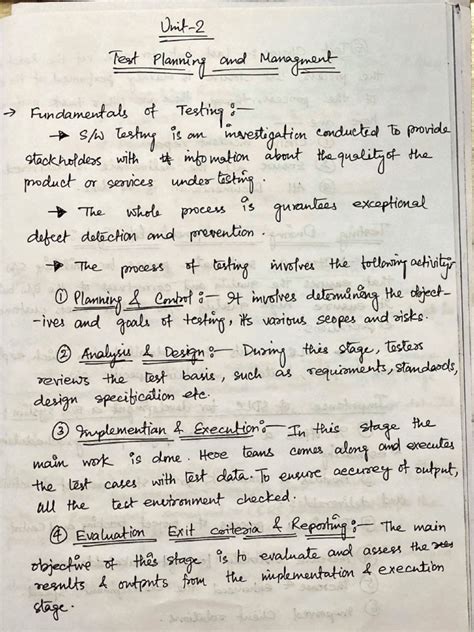 Unit-2
Test Planning and Managment
→ Fundamentals of Testing :—
→ S/W Testing is an investigation conducted to provide
stackholders with information about the quality of the
product or services under testing.
→ The whole process is gurantees exceptional
defect detection and prevention.
→ The process of testing involves the following activity:
① Planning & Control :— It involves determining the object-
-ives and goals of testing, its various scopes and risks.
② Analysis & Design :— During this stage, testers
reviews the test basis, such as requirments, standards,
design specification etc.
③ Implementian & Execution :— In this stage the
main work is done. Here teams comes along and executes
the test cases with test data. To ensure accuracy of output,
all the test environment checked.
④ Evaluation Exit criteria & Reporting :— The main
objective of this stage is to evaluate and assess the
results & outputs from the implementation & execution
stage.